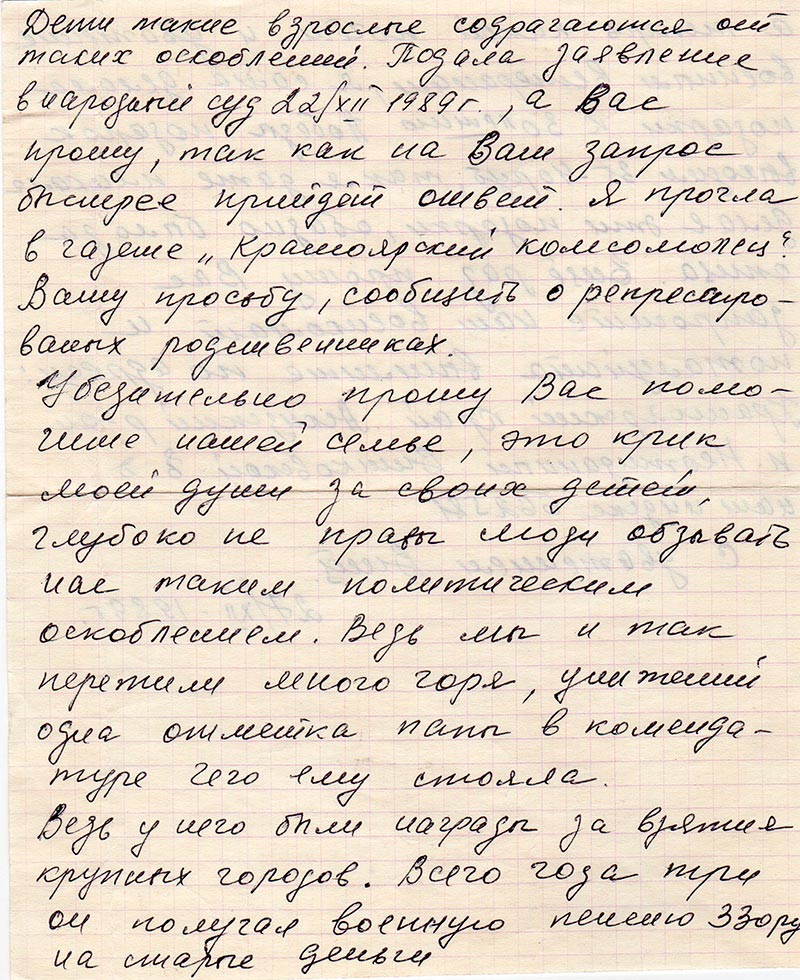 Дети такие взрослые содрагаются от
таких оскоблений. Подала заявление
в народный суд 22/XII 1989г., а Вас
прошу, так как на Ваш запрос
быстрее прийдёт ответ. Я прочла
в газете „Красноярский комсомолец“
Вашу просьбу, сообщить о репрессиро-
ваных родственниках.
Убедительно прошу Вас помо-
гите нашей семье, это крик
моей души за своих детей,
глубоко не правы люди обзывать
нас таким политическим
оскоблением. Ведь мы и так
пережили много горя, унижений
одна отметка папы в коменда-
туре чего ему стояла.
Ведь у него были награды за взятия
крупных городов. Всего года три
он получал военную пенсию 330ру
на старые деньги